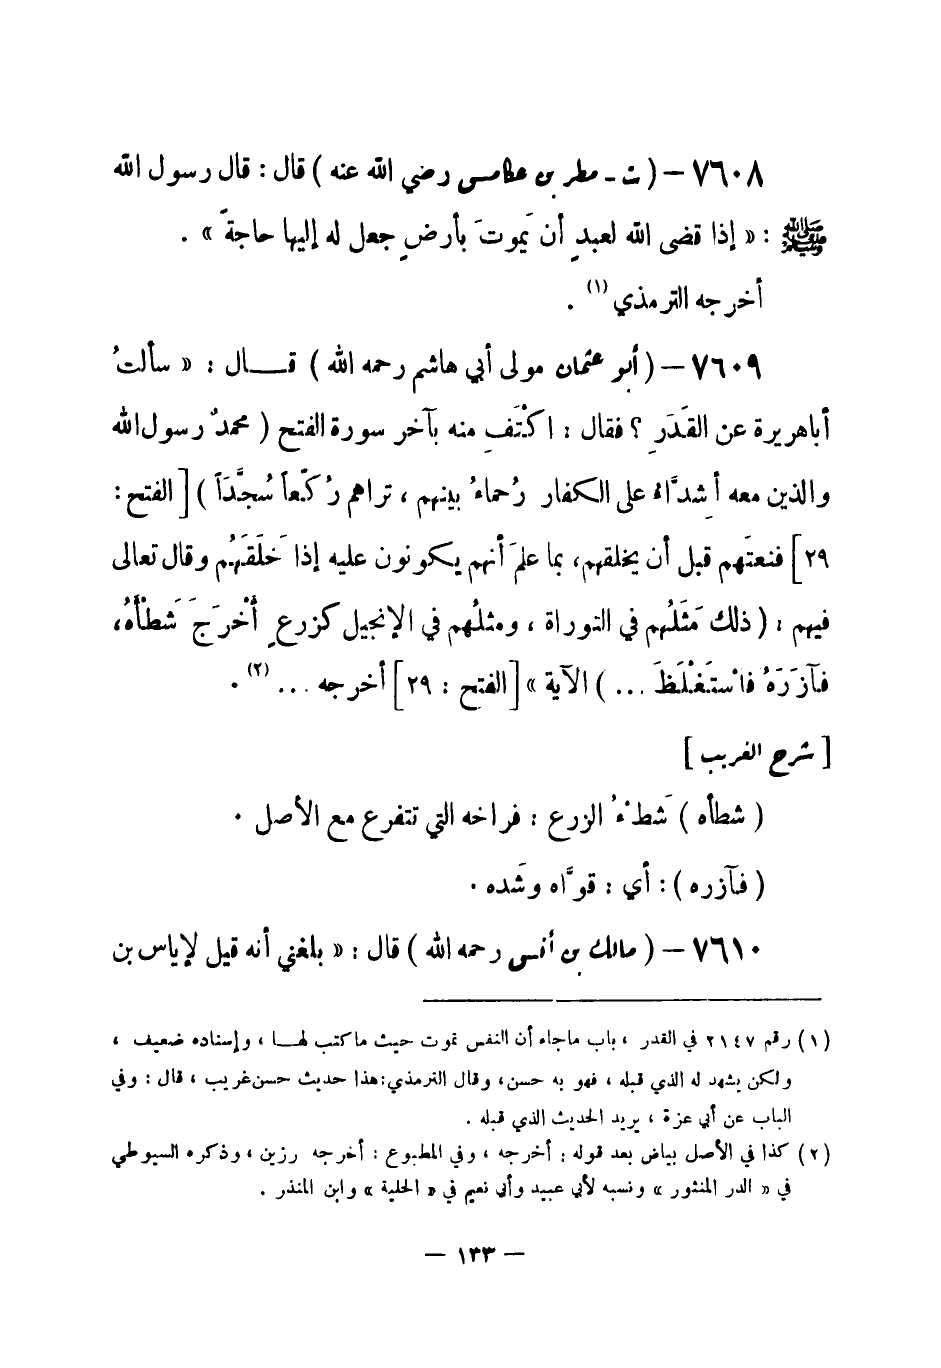 ٧٦٠٨ – ( ت - مطر بن عكامس رضي الله عنه ) قال : قال رسول الله
ﷺ : « إذا قضى الله لعبدٍ أن يَموتَ بأرضٍ جعل له إليها حاجةً » .
أخرجه الترمذي (١) .
٧٦٠٩ – ( أبو عثمان مولى أبي هاشم رحمه الله ) قـــال : « سألتُ
أباهريرة عن القَدَرِ ؟ فقال : اكْتَفِ منه بآخر سورة الفتح ( محمدٌ رسول الله
والذين معه أشِدَّاءُ على الكفار رُحماءُ بينهم ، تراهم رُكَّعاً سُجَّدَاً ) [ الفتح :
٢٩ ] فنعتَهم قبل أن يخلقهم، بما علمَ أنهم يكونون عليه إذا خَلَقَهُم وقال تعالى
فيهم : ( ذلك مَثَلُهم في التوراة ، ومثلُهم في الإنجيل كزرعٍ أَخْرَجَ شَطْأَهُ،
فآزَرَهُ فاسْتَغْلَظَ ... ) الآية » [ الفتح : ٢٩ ] أخرجه ... (٢) .
[ شرح الغريب ]
( شطأه ) شَطْءُ الزرع : فراخه التي تتفرع مع الأصل .
( فآزره ) : أي : قوَّاه وشَده .
٧٦١٠ – ( مالك بن أنس رحمه الله ) قال : « بلغني أنه قيل لإياس بن
(١) رقم ٢١٤٧ في القدر ، باب ماجاء أن النفس تموت حيث ماكتب لهـــا ، وإسناده ضعيف ،
ولكن يشهد له الذي قبله ، فهو به حسن، وقال الترمذي:هذا حديث حسن غريب ، قال : وفي
الباب عن أبي عزة ، يريد الحديث الذي قبله .
(٢) كذا في الأصل بياض بعد قوله : أخرجه ، وفي المطبوع : أخرجه رزين ، وذكره السيوطي
في « الدر المنثور » ونسبه لأبي عبيد وأبي نعيم في « الحلية » وابن المنذر .
– ١٣٣ –